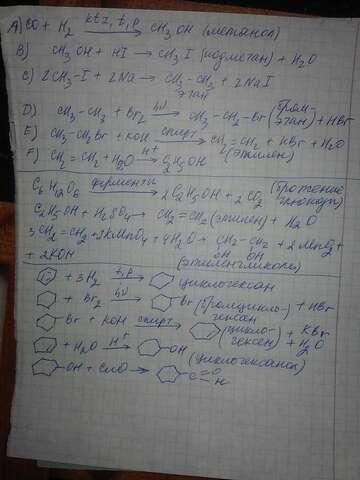 A) CO + H2 —kt, t, p→ CH3OH (метанол)
B) CH3OH + HI → CH3I (иодметан) + H2O
C) 2CH3-I + 2Na → CH3-CH3 + 2NaI
этан
D) CH3-CH3 + Br2 —hν→ CH3-CH2-Br (бромэтан) + HBr
E) CH3-CH2Br + KOH —спирт→ CH2=CH2 + KBr + H2O
(этилен)
F) CH2=CH2 + H2O —H+→ C2H5OH
C6H12O6 —ферменты→ 2C2H5OH + 2CO2 (брожение глюкозы)
C2H5OH + H2SO4 → CH2=CH2 (этилен) + H2O
3CH2=CH2 + 2KMnO4 + 4H2O → CH2-CH2 + 2MnO2
OH OH
+ 2KOH (этиленгликоль)
+ 3H2 —t, p→ циклогексан
+ Br2 —hν→ Br (бромциклогексан) + HBr
Br + KOH —спирт→ (циклогексен) + KBr + H2O
+ H2O —H+→ OH (циклогексанол)
OH + CuO → C=O
H